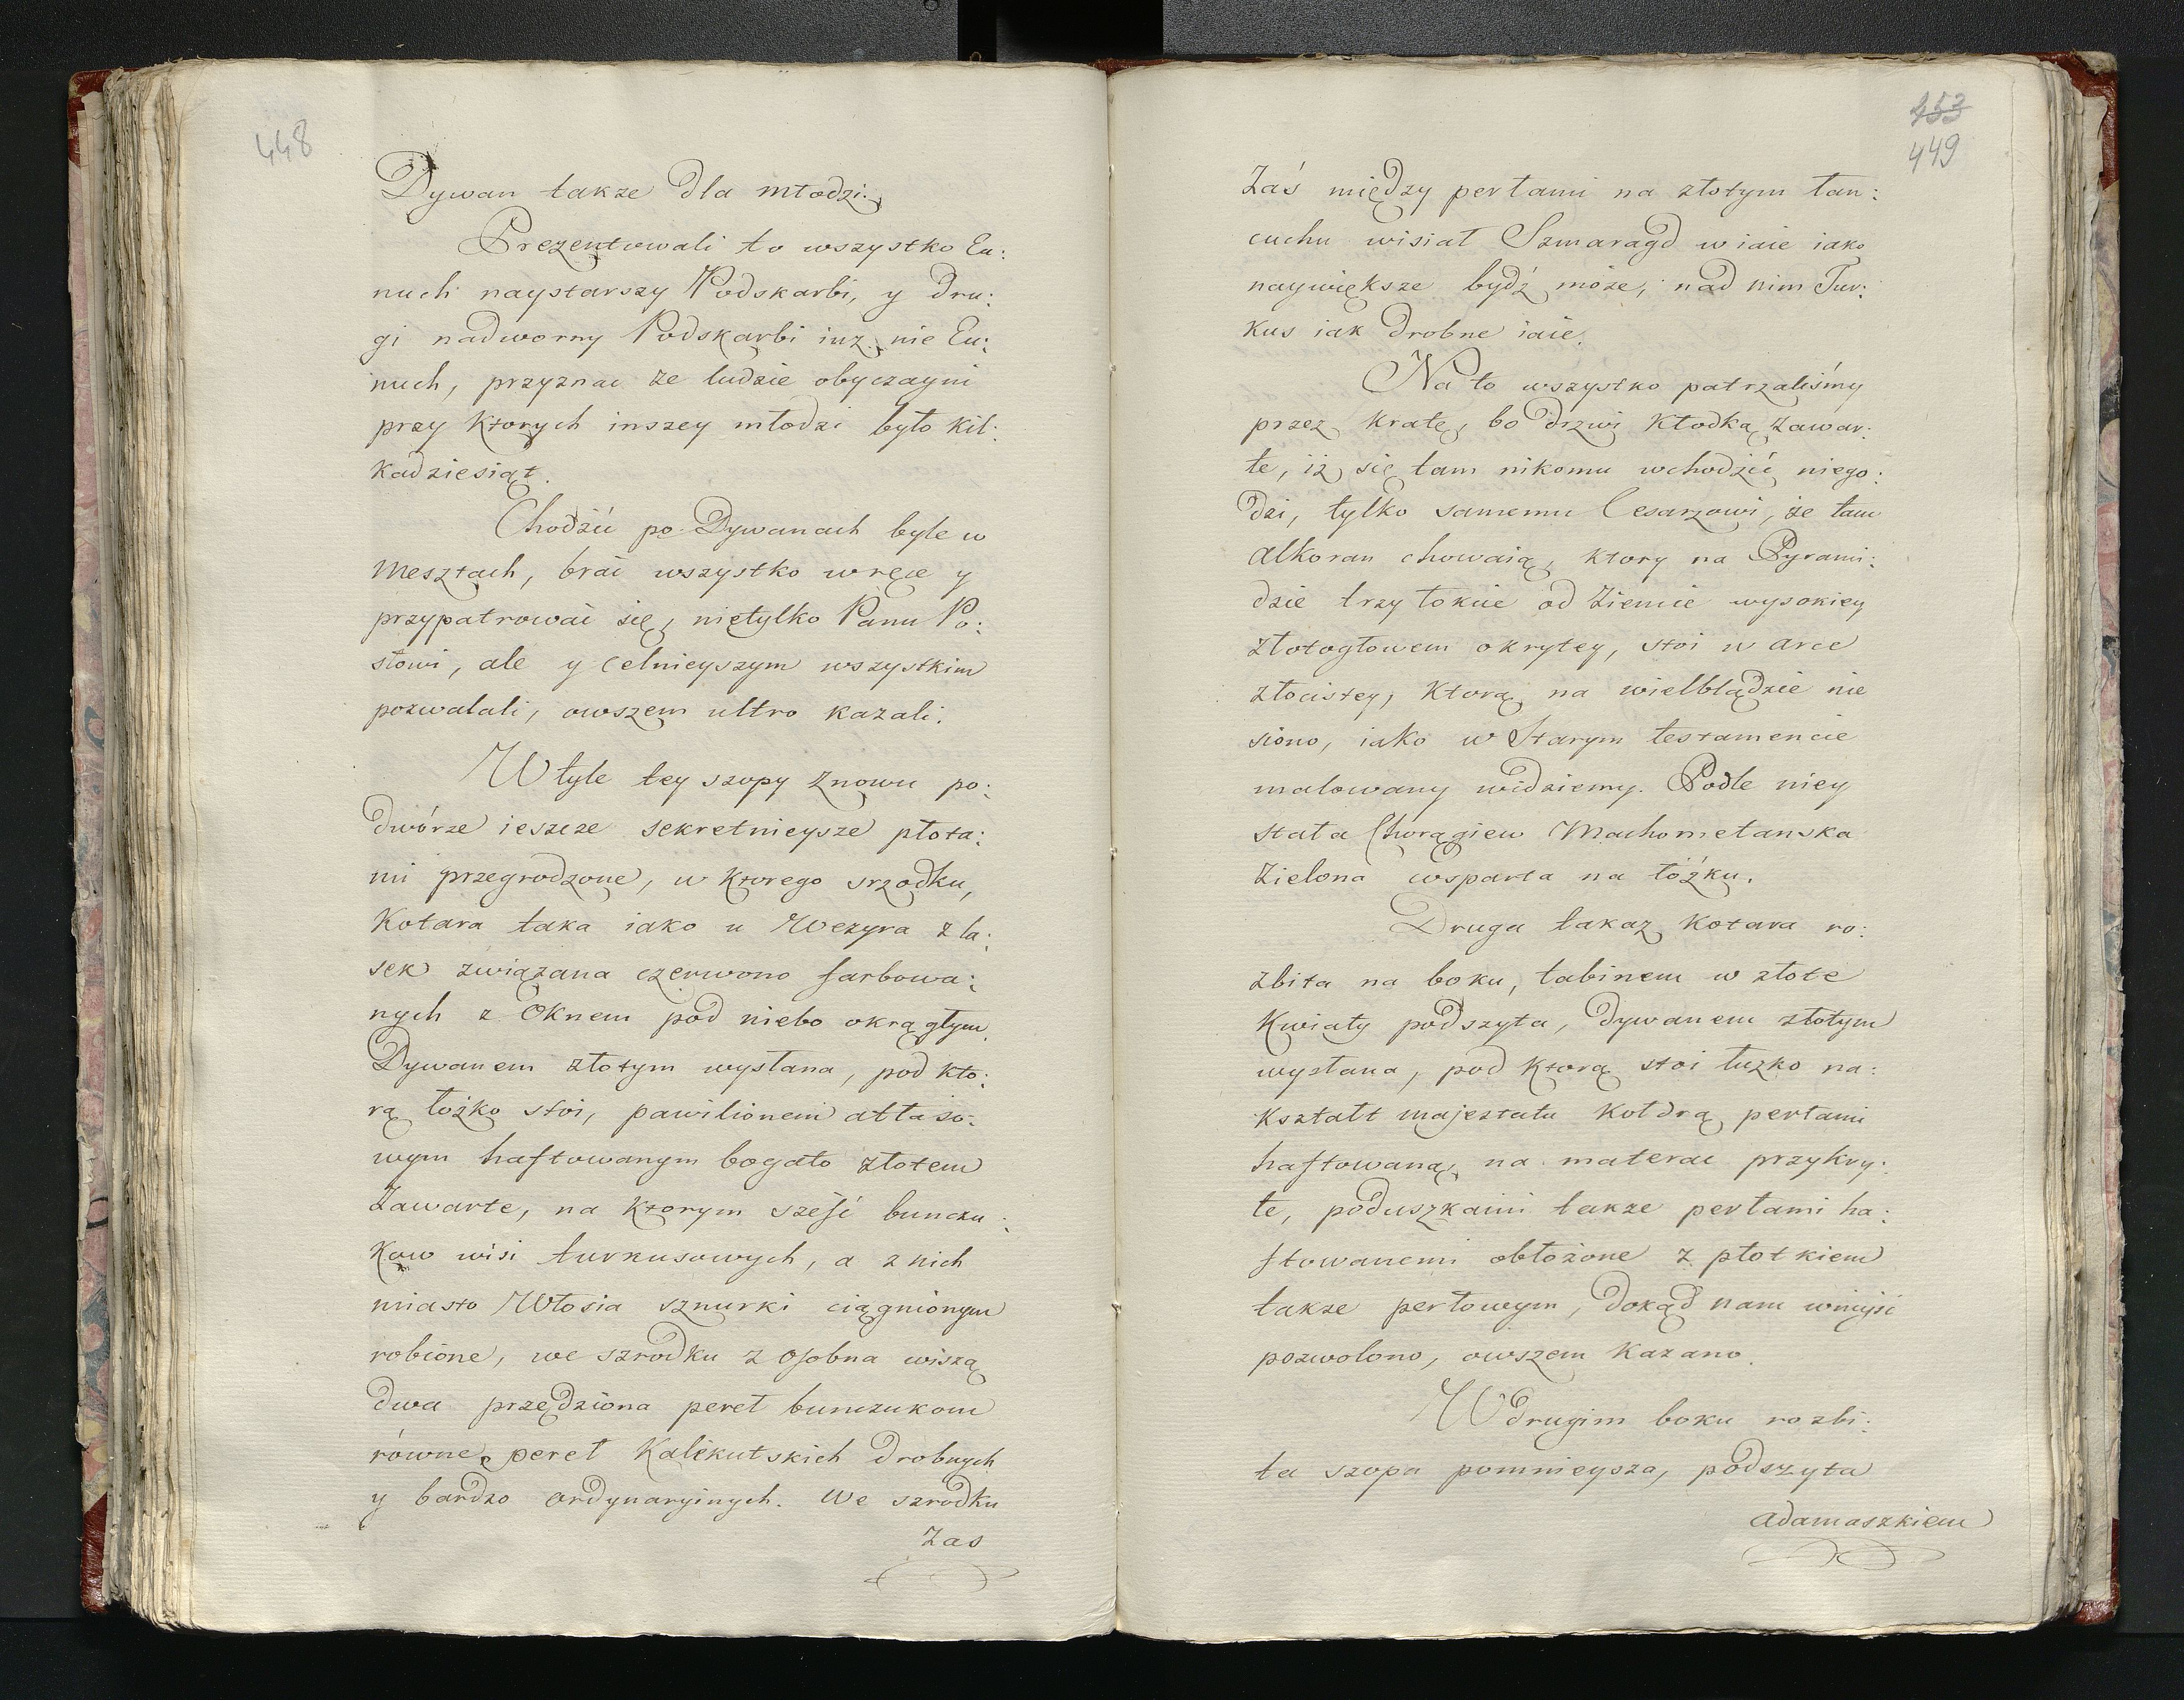 448
Dywan takze dla młodzi.
Prezentowali to wszystko Eu:
nuch naystarszy Podskarbi, y dru:
gi nadworny Podskarbi iuz nie Eu:
nuch, przyznac ze ludzie obyczayni
przy ktorych inszey młodzi było kil:
kadziesiąt.
Chodzić po Dywanach byle w
mesztach, brać wszystko wręce y
przypatrować się, nietylko Panu Po:
słowi, ale y celnieyszym wszystkim
pozwalali, owszem ultro kazali.
W tyle tey szopy znowu po:
dwórze ieszcze sekretnieysze płota:
mi przegrodzone, w ktorego srzodku,
Kotara taka iako u Wezyra z la:
sek związana czerwono farbowa:
nych z Oknem pod niebo okrągłym.
Dywanem złotym wysłana, pod kto:
rą łożko stoi, pawilionem attaso:
wym haftowanym bogato złotem
zawarte, na ktorym sześć bunczu:
kow wisi turkusowych, a z nich
miasto Włosia sznurki ciągnionym
robione, we szrodku z osobna wiszą
dwa przędziona pereł bunczukom
równe, pereł Kalikutskich drobnych
y bardzo ordynaryinych. We szrodku
Zas
453
449
Zaś między perłami na złotym łan:
cuchu wisiał Szmaragd w iaie iako
naywiększe bydź może, nad nim Tur:
kus iak drobne iaie.
Na to wszystko patrzaliśmy
przez kratę, bo drzwi kłodką zawar:
te, iż się tam nikomu wchodzić niego:
dzi, tylko samemu Cesarzowi, że tam
alkoran chowaią, ktory na Pyrami:
dzie trzy łokcie od Ziemie wysokiey
złotogłowem okrytey, stoi w arce
złocistey, ktorą na wielblądzie nie
siono, iako w Starym testamencie
malowany widziemy. Podle niey
stała Chorągiew Machometanska
zielona wsparta na łóżku.
Druga takaz kotara ro:
zbita na boku, tabinem w złote
kwiaty podszyta, dywanem złotym
wysłana, pod ktorą stoi łuzko na:
kształt majestatu kołdrą perłami
haftowaną, na materac przykry:
te, poduszkami takze perłami ha:
ftowanemi obłożone z płotkiem
takze perłowym, dokąd nam wniyść
pozwolono, owszem kazano.
W drugim boku rozbi:
ta szopa pomnieysza, podszyta
adamaszkiem